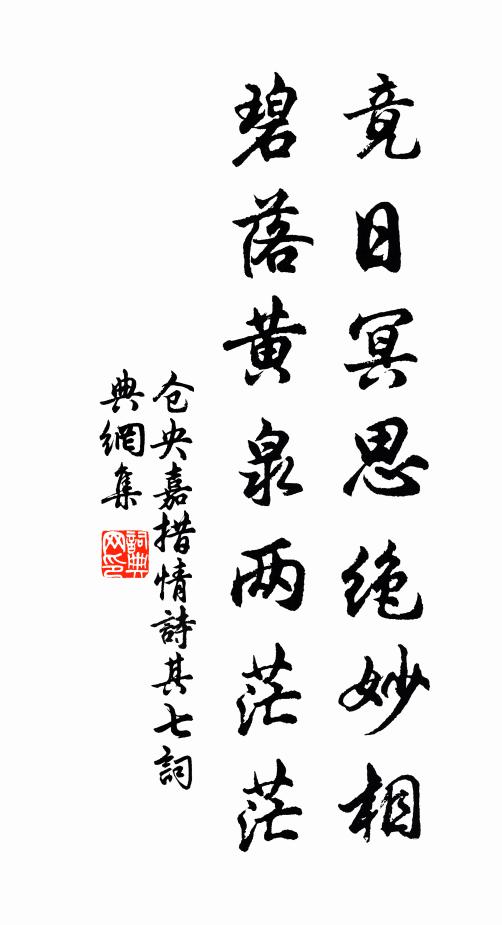 竟日冥思绝妙相
碧落黄泉两茫茫
仓央嘉措情詩其七詞
典網集
詞典
网印